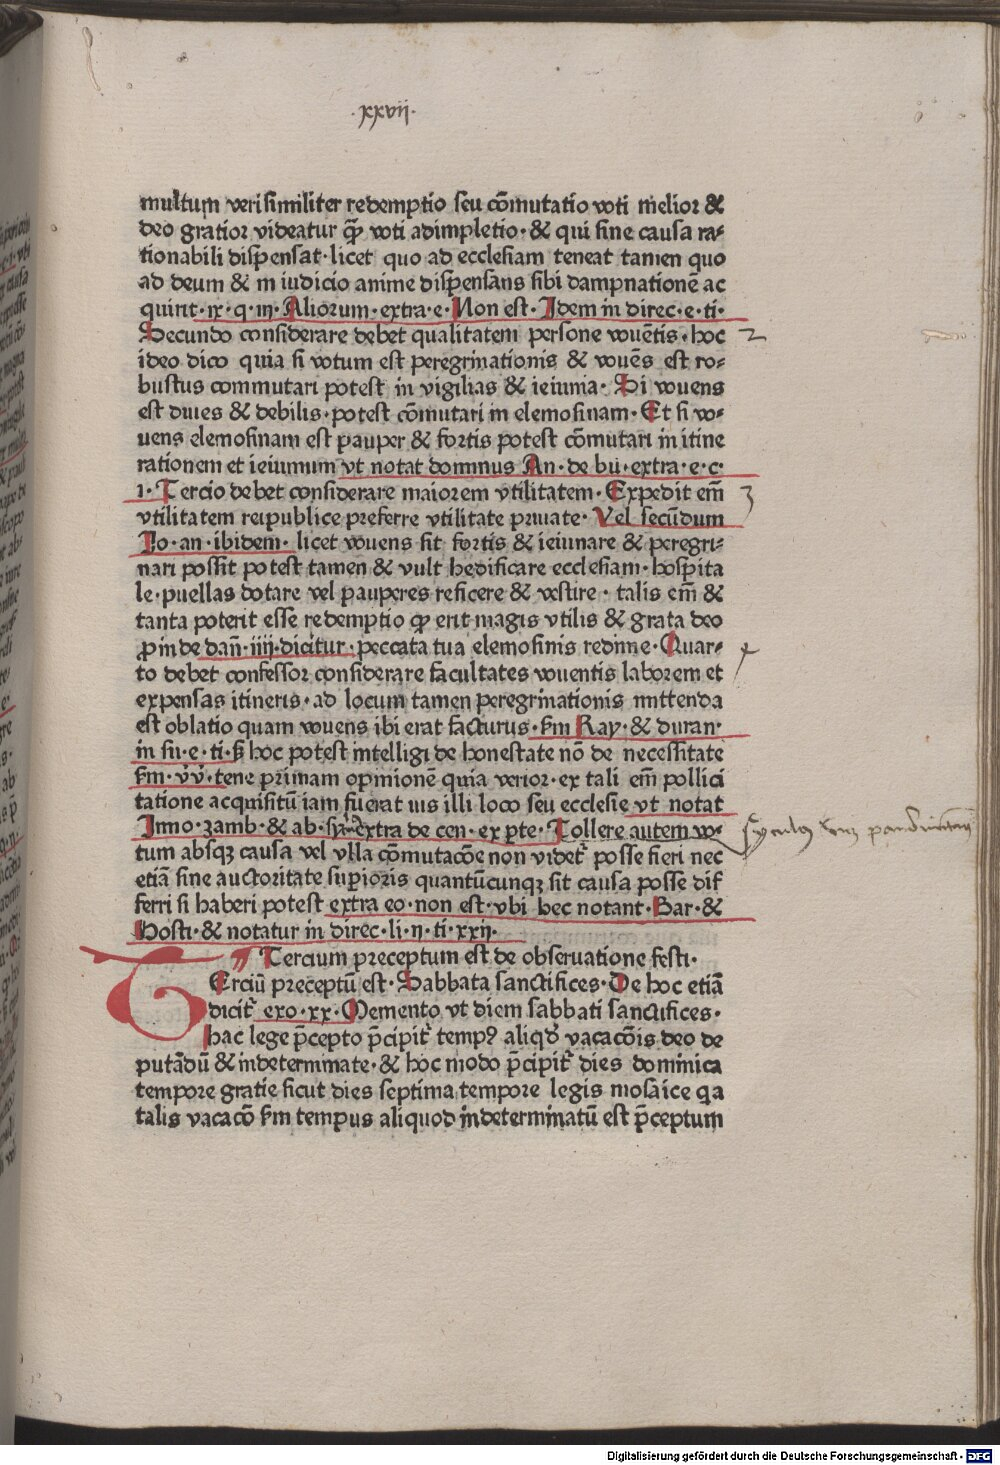 ·xxvij·
multum verisimiliter redemptio seu cōmutatio voti melior &
deo gratior videatur q̄ȝ voti adimpletio· & qui sine causa ra⸗
tionabili dispensat· licet quo ad ecclesiam teneat tamen quo
ad deum & in iudicio anime dispensans sibi dampnationē ac
quirit· ix· q· iii· Aliorum· extra· e· Non est· Idem in direc· e· ti·
Secundo considerare debet qualitatem persone vouētis· hoc
2
ideo dico quia si votum est peregrinationis & vouēs est ro⸗
bustus commutari potest in vigilias & ieiunia· Si vouens
est diues & debilis· potest cōmutari in elemosinam· Et si vo⸗
uens elemosinam est pauper & fortis potest cōmutari in itine
rationem et ieiunium vt notat dominus An· de bu· extra· e· c·
1· Tercio debet considerare maiorem vtilitatem· Expedit em̄
3
vtilitatem reipublice preferre vtilitate priuate· Vel secūdum
Io· an· ibidem· licet vouens sit fortis & ieiunare & peregri⸗
nari possit potest tamen & vult hedificare ecclesiam· hospita
le· puellas dotare vel pauperes reficere & vestire· talis em̄ &
tanta poterit esse redemptio ꝙ erit magis vtilis & grata deo
ꝓinde dan̄· iiij· dicitur· peccata tua elemosinis redime· Quar⸗
to debet confessor considerare facultates vouentis laborem et
expensas itineris· ad locum tamen peregrinationis mittenda
est oblatio quam vouens ibi erat facturus· ẜm Ray· & duran·
in su· e· ti· ꝫ hoc potest intelligi de honestate nō de necessitate
ẜm· vv̄· tene primam opinionē quia verior· ex tali em̄ pollici
tatione acquisitū iam fuerat ius illi loco seu ecclesie vt notat
Inno· zamb· & ab· extra de cen· ex pte· Tollere autem vo⸗
tum absqȝ causa vel vlla cōmutacōe non videt᷑ posse fieri nec
etiā sine auctoritate supioris quantūcunqȝ sit causa posse dif
ferri si haberi potest extra eo· non est· vbi hec notant· Bar· &
Hosti· & notatur in direc· li· ij· ti· xxij·
Tercium preceptum est de obseruatione festi·
TErciū preceptū est· Sabbata sanctifices· De hoc etiā
dicit᷑ exo· xx· Memento vt diem sabbati sanctifices·
hac lege p̄cepto p̄cipit᷑ tempꝰ aliqd̄ vacacōis deo de
putādū & indeterminate· & hoc modo p̄cipit᷑ dies dominica
tempore gratie sicut dies septima tempore legis mosaice qa
talis vacacō ẜm tempus aliquod indeterminatū est p̄ceptum
Digitalisierung gefördert durch die Deutsche Forschungsgemeinschaft - DFG